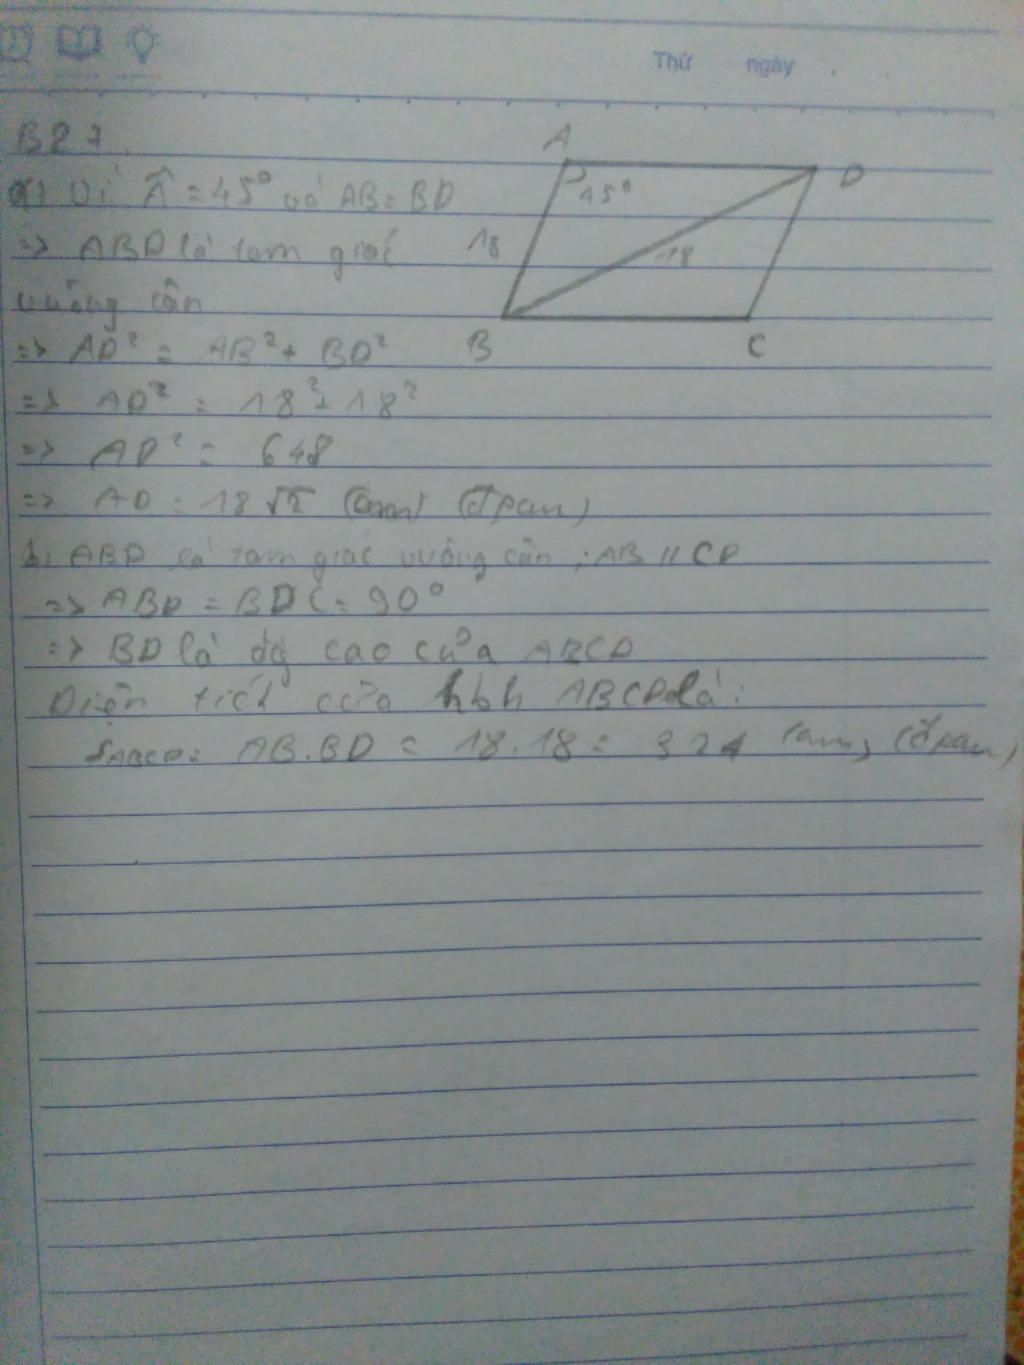 Thứ ngày
B27
a) Vì Â = 45° và AB = BD
=> ABD là tam giác
vuông cân
=> AD² = AB² + BD²
=> AD² = 18² + 18²
=> AD² = 648
=> AD = 18√2 (cm) (đpcm)
b) ABD là tam giác vuông cân ; AB // CD
=> ABD = BDC = 90°
=> BD là đg cao của ABCD
Diện tích của hbh ABCD là:
SABCD = AB.BD = 18.18 = 324 (cm) (đpcm)
A
D
45°
18
18
B
C